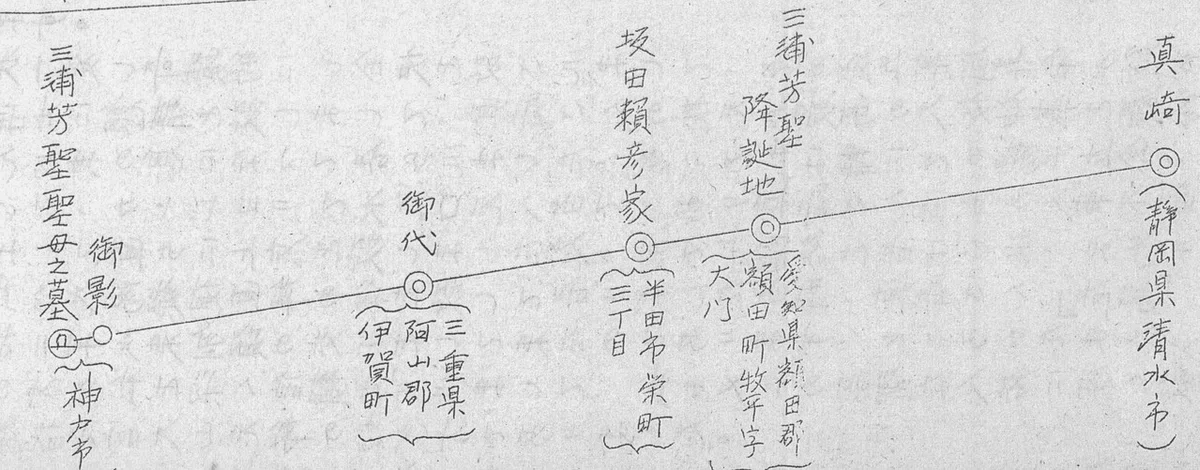 真崎
（静岡県清水市）
三浦芳聖
降誕地
愛知県額田郡
額田町牧平字
大門
坂田頼彦家
半田市栄町
三丁目
御代
三重県
阿山郡
伊賀町
御影
三浦芳聖聖母之墓
神戸市